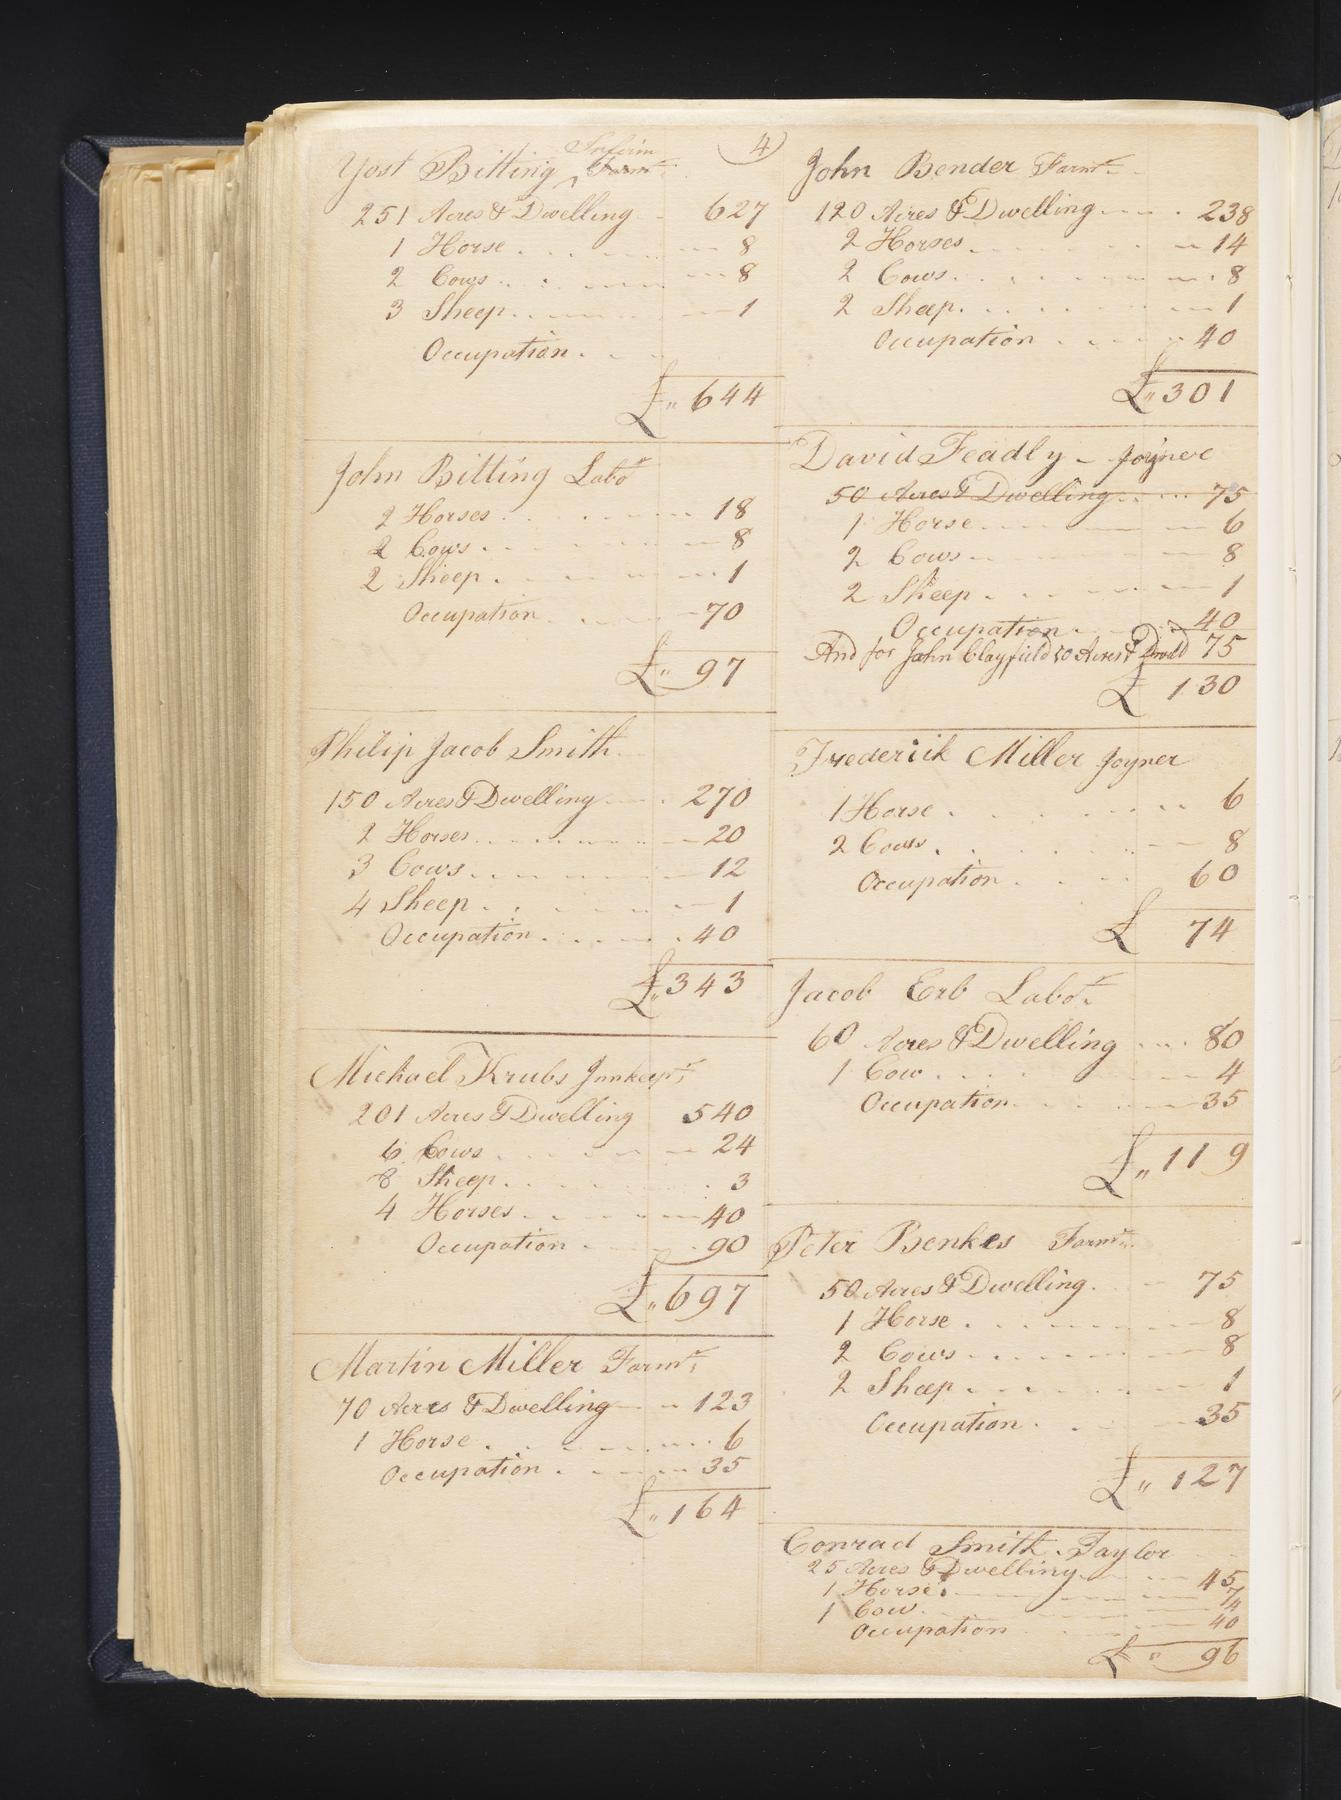 4
Yost Bitting Infirm Farmr
251 Acres & Dwelling 627
1 Horse 8
2 Cows 8
3 Sheep 1
Occupation
£ 644
John Bitting Labor
2 Horses 18
2 Cows 8
2 Sheep 1
Occupation 70
£ 97
Philip Jacob Smith
150 Acres & Dwelling 270
2 Horses 20
3 Cows 12
4 Sheep 1
Occupation 40
£ 343
Michael Krubs Innkeepr
201 Acres & Dwelling 540
6 Cows 24
8 Sheep 3
4 Horses 40
Occupation 90
£ 697
Martin Miller Farmr
70 Acres & Dwelling 123
1 Horse 6
Occupation 35
£ 164
John Bender Farmr
120 Acres & Dwelling 238
2 Horses 14
2 Cows 8
2 Sheep 1
Occupation 40
£ 301
David Feadly - Joyner
50 Acres & Dwelling 75
1 Horse 6
2 Cows 8
2 Sheep 1
Occupation 40
And for John Clayfield 50 Acres & 75
£ 130
Frederick Miller Joyner
1 Horse 6
2 Cows 8
Occupation 60
£ 74
Jacob Erb Labor
60 Acres & Dwelling 80
1 Cow 4
Occupation 35
£ 119
Peter Benkes Farmr
50 Acres & Dwelling 75
1 Horse 8
2 Cows 8
2 Sheep 1
Occupation 35
£ 127
Conrad Smith Taylor
25 Acres & Dwelling 45
1 Horse 7
1 Cow 4
Occupation 40
£ 96